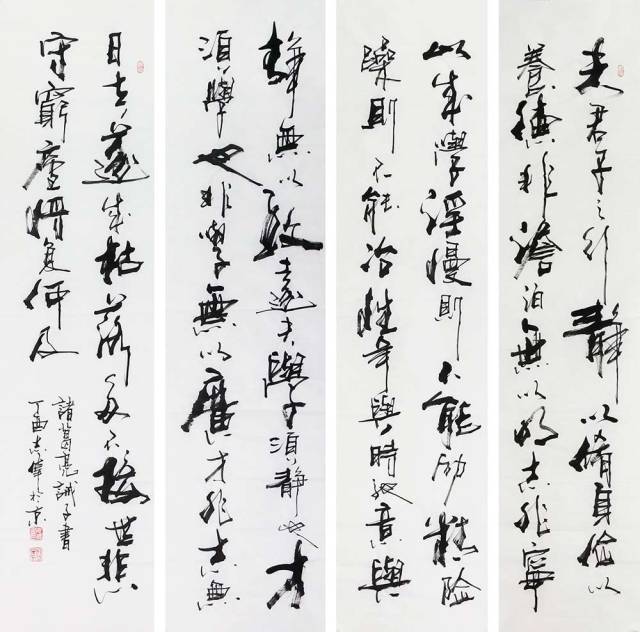 夫君子之行靜以脩身儉以
養德非澹泊無以明志非寧
以成學淫慢則不能勵精險
躁則不能冶性年與時馳意與
靜無以致遠夫學須靜也才
須學也非學無以廣才非志無
日去遂成枯落多不接世悲
守窮廬將復何及
諸葛亮誡子書
丁酉志偉於京